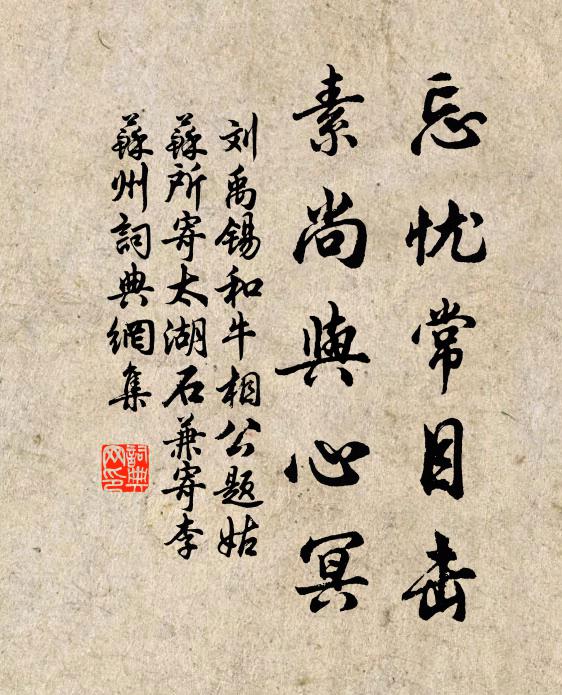 忘忧常目击
素尚與心冥
刘禹锡和牛相公题姑
蘇所寄太湖石兼寄李
蘇州詞典網集
詞典网印